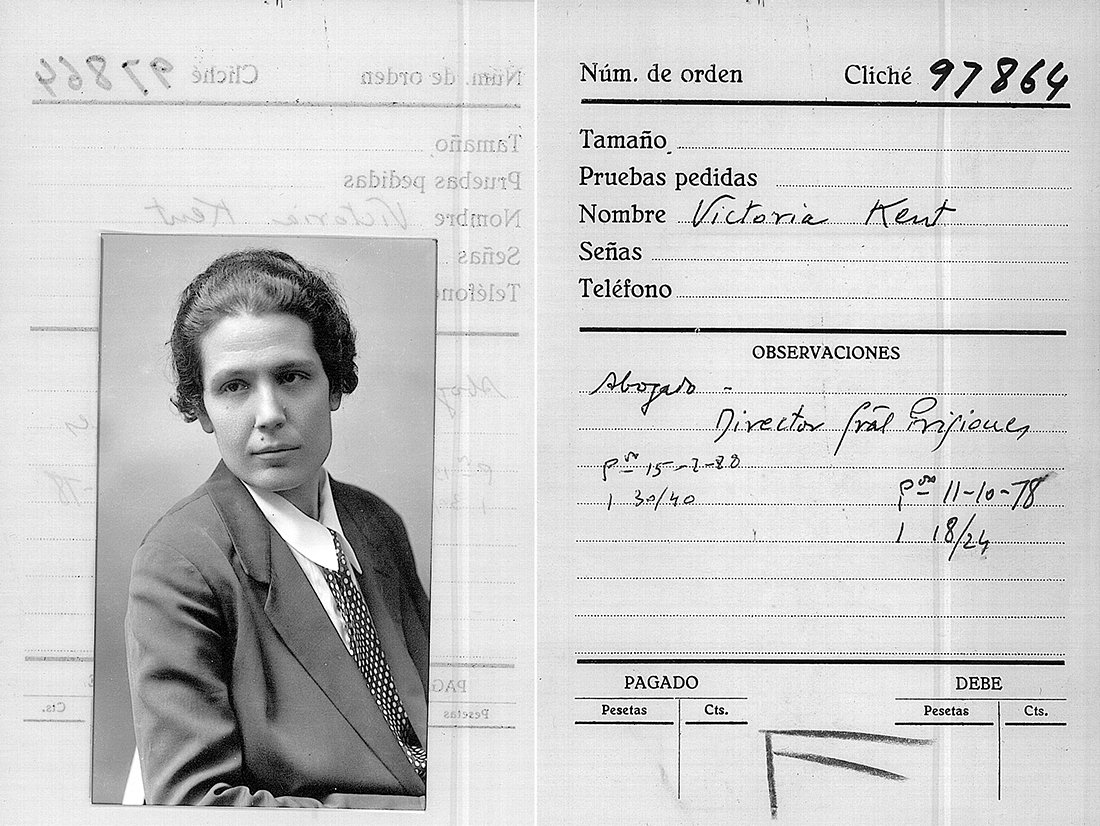 Núm. de orden Cliché 97864
Tamaño
Pruebas pedidas
Nombre Victoria Kent
Señas
Teléfono
Núm. de orden Cliché 97864
Tamaño
Pruebas pedidas
Nombre Victoria Kent
Señas
Teléfono
OBSERVACIONES
Abogado -
Director Grãl Prisiones
15-2-88
1 30/40
11-10-78
1 18/24
PAGADO DEBE
Pesetas Cts. Pesetas Cts.
Cts. Pesetas